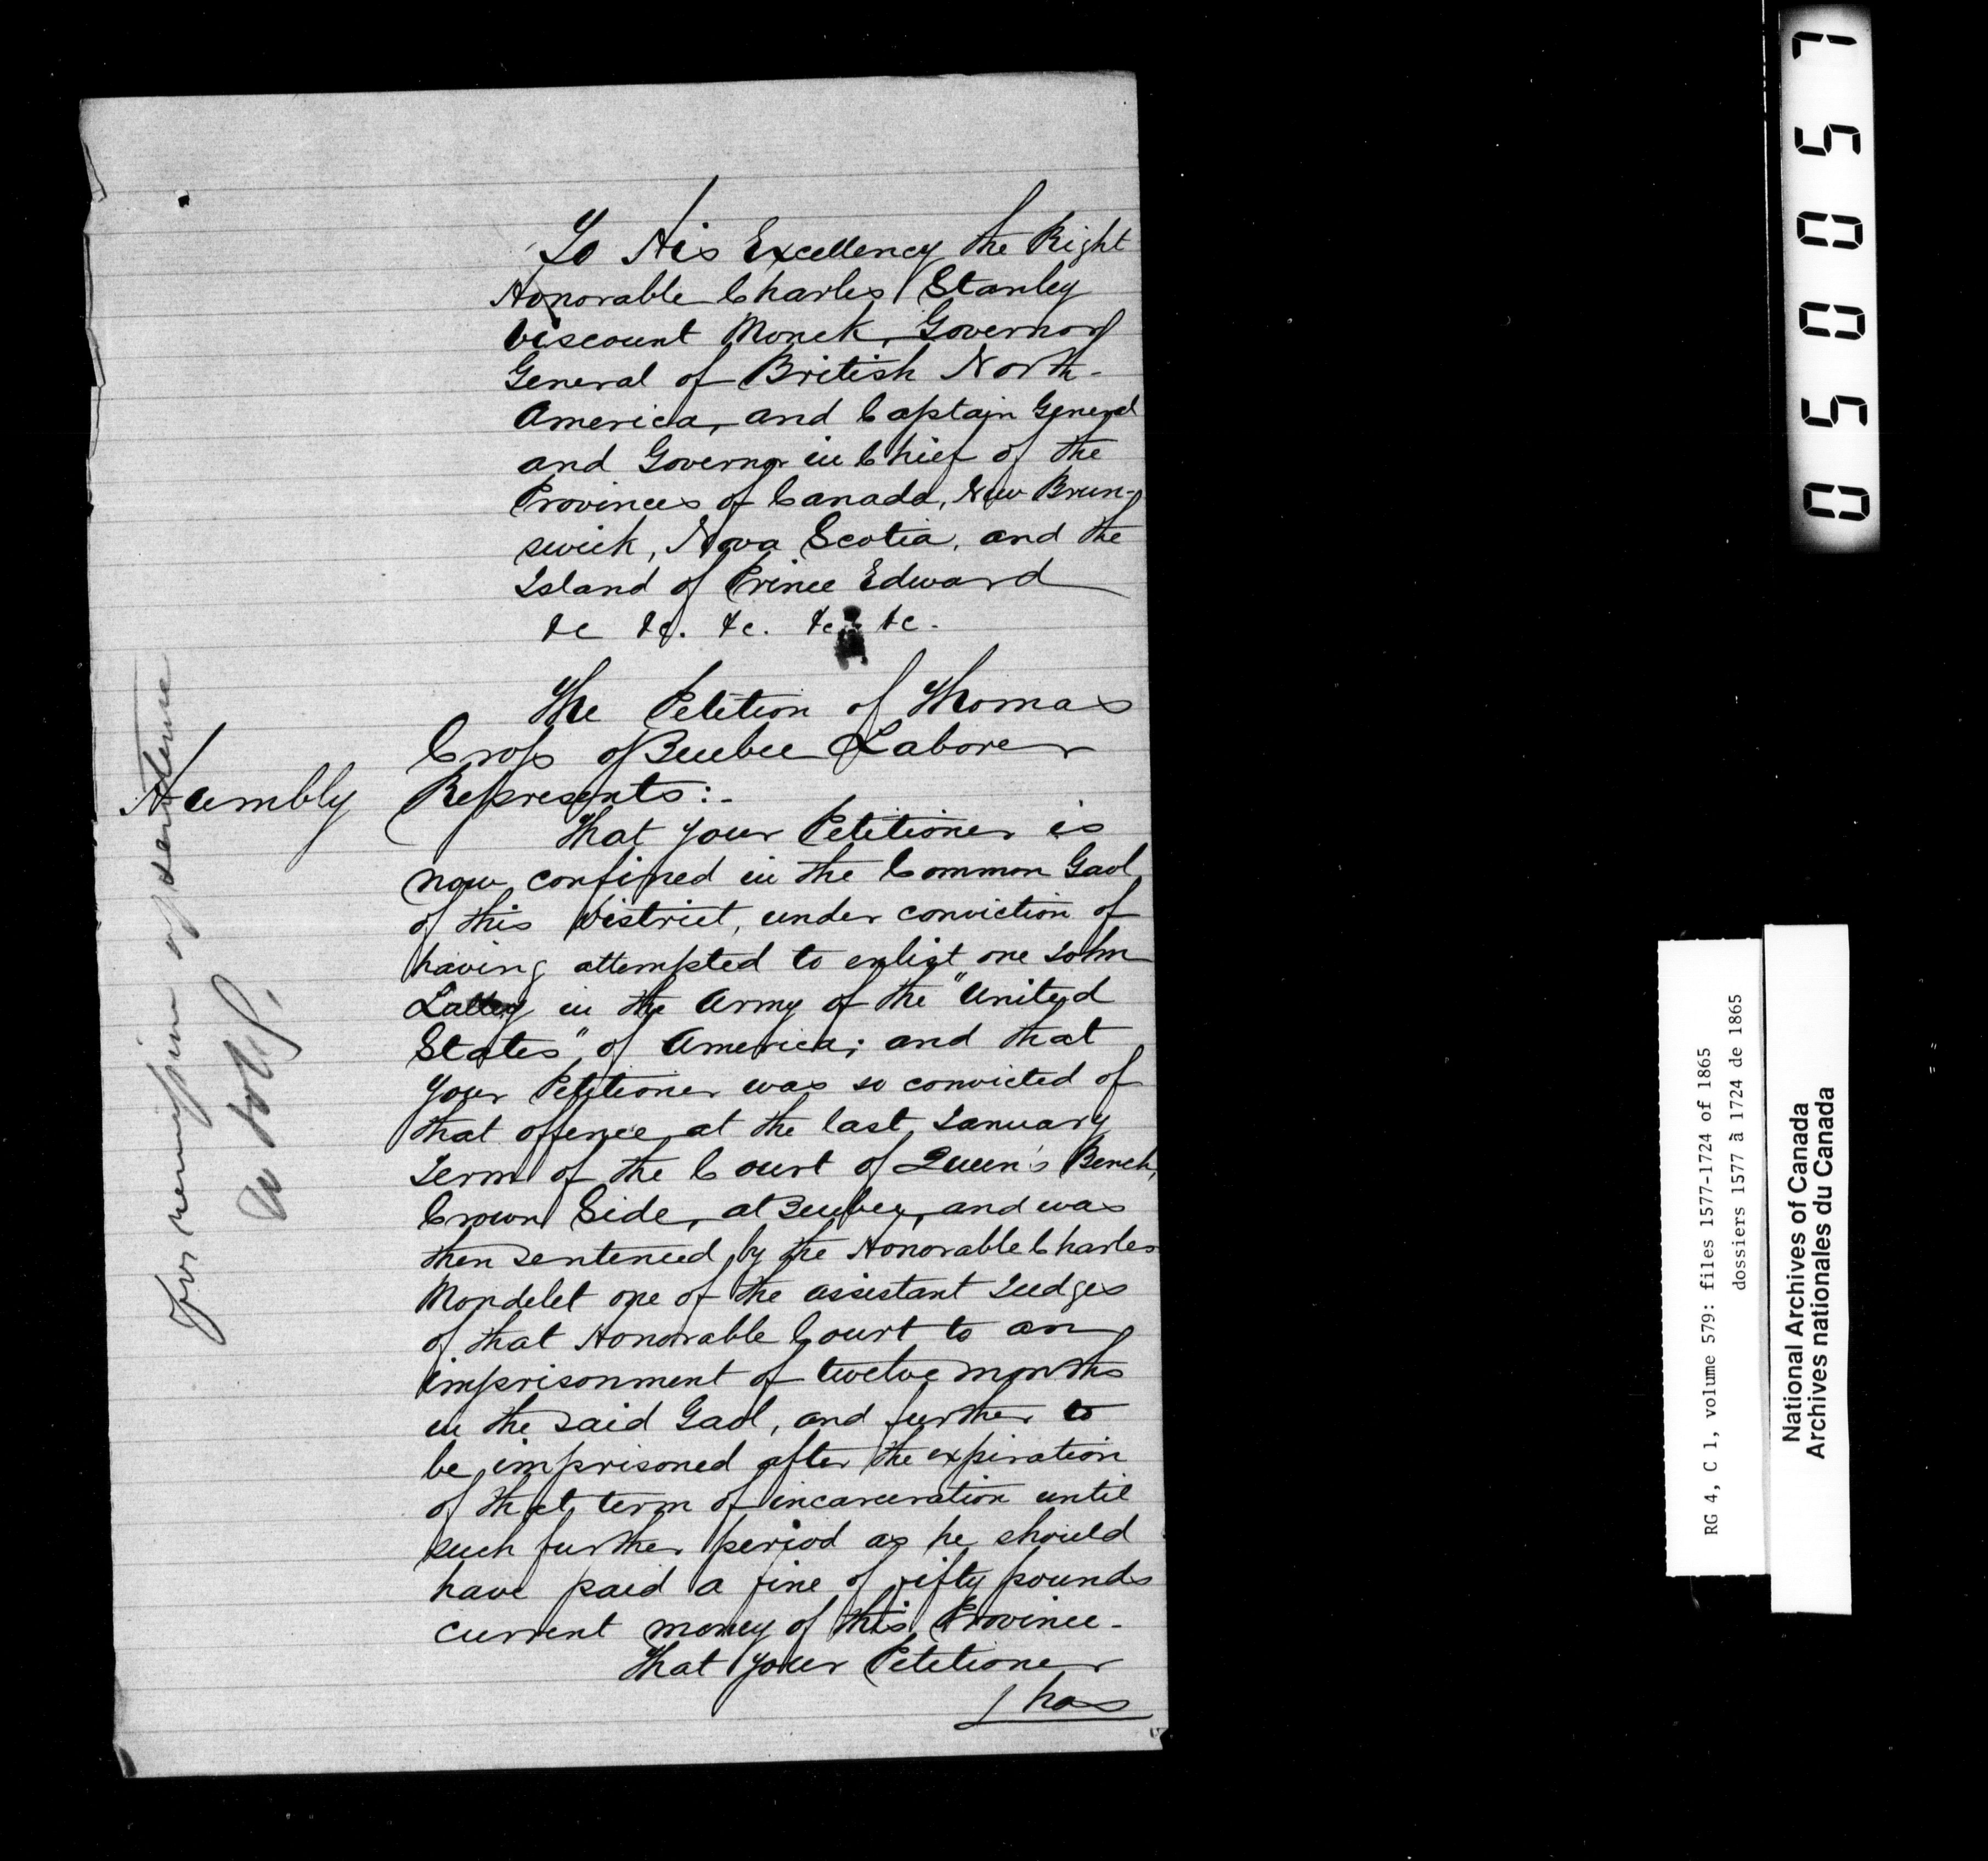 To His Excellency the Right
Honorable Charles Stanley
Viscount Monck, Governor
General of British North-
America, and Captain General
and Governor in Chief of the
Provinces of Canada, New Brun-
swick, Nova Scotia, and the
Island of Prince Edward
&c &c. &c. &c &c.
The Petition of Thomas
Cross of Quebec Laborer
Humbly Represents:-
That your Petitioner is
now confined in the Common Gaol
of this District, under conviction of
having attempted to enlist one John
in the Army of the "United
States" of America; and that
your Petitioner was so convicted of
that offence at the last January
Term of the Court of Queen's Bench,
Crown Side, at Quebec, and was
then sentenced by the Honorable Charles
Mondelet one of the assistant Judges
of that Honorable Court to an
imprisonment of twelve months
in the said Gaol, and further to
be imprisoned after the expiration
of that term of incarceration until
such further period as he should
have paid a fine of fifty pounds
current money of this Province-
That your Petitioner
/ has
For remission of sentence
050057
RG 4, C 1, volume 579: files 1577-1724 of 1865
dossiers 1577 à 1724 de 1865
National Archives of Canada
Archives nationales du Canada